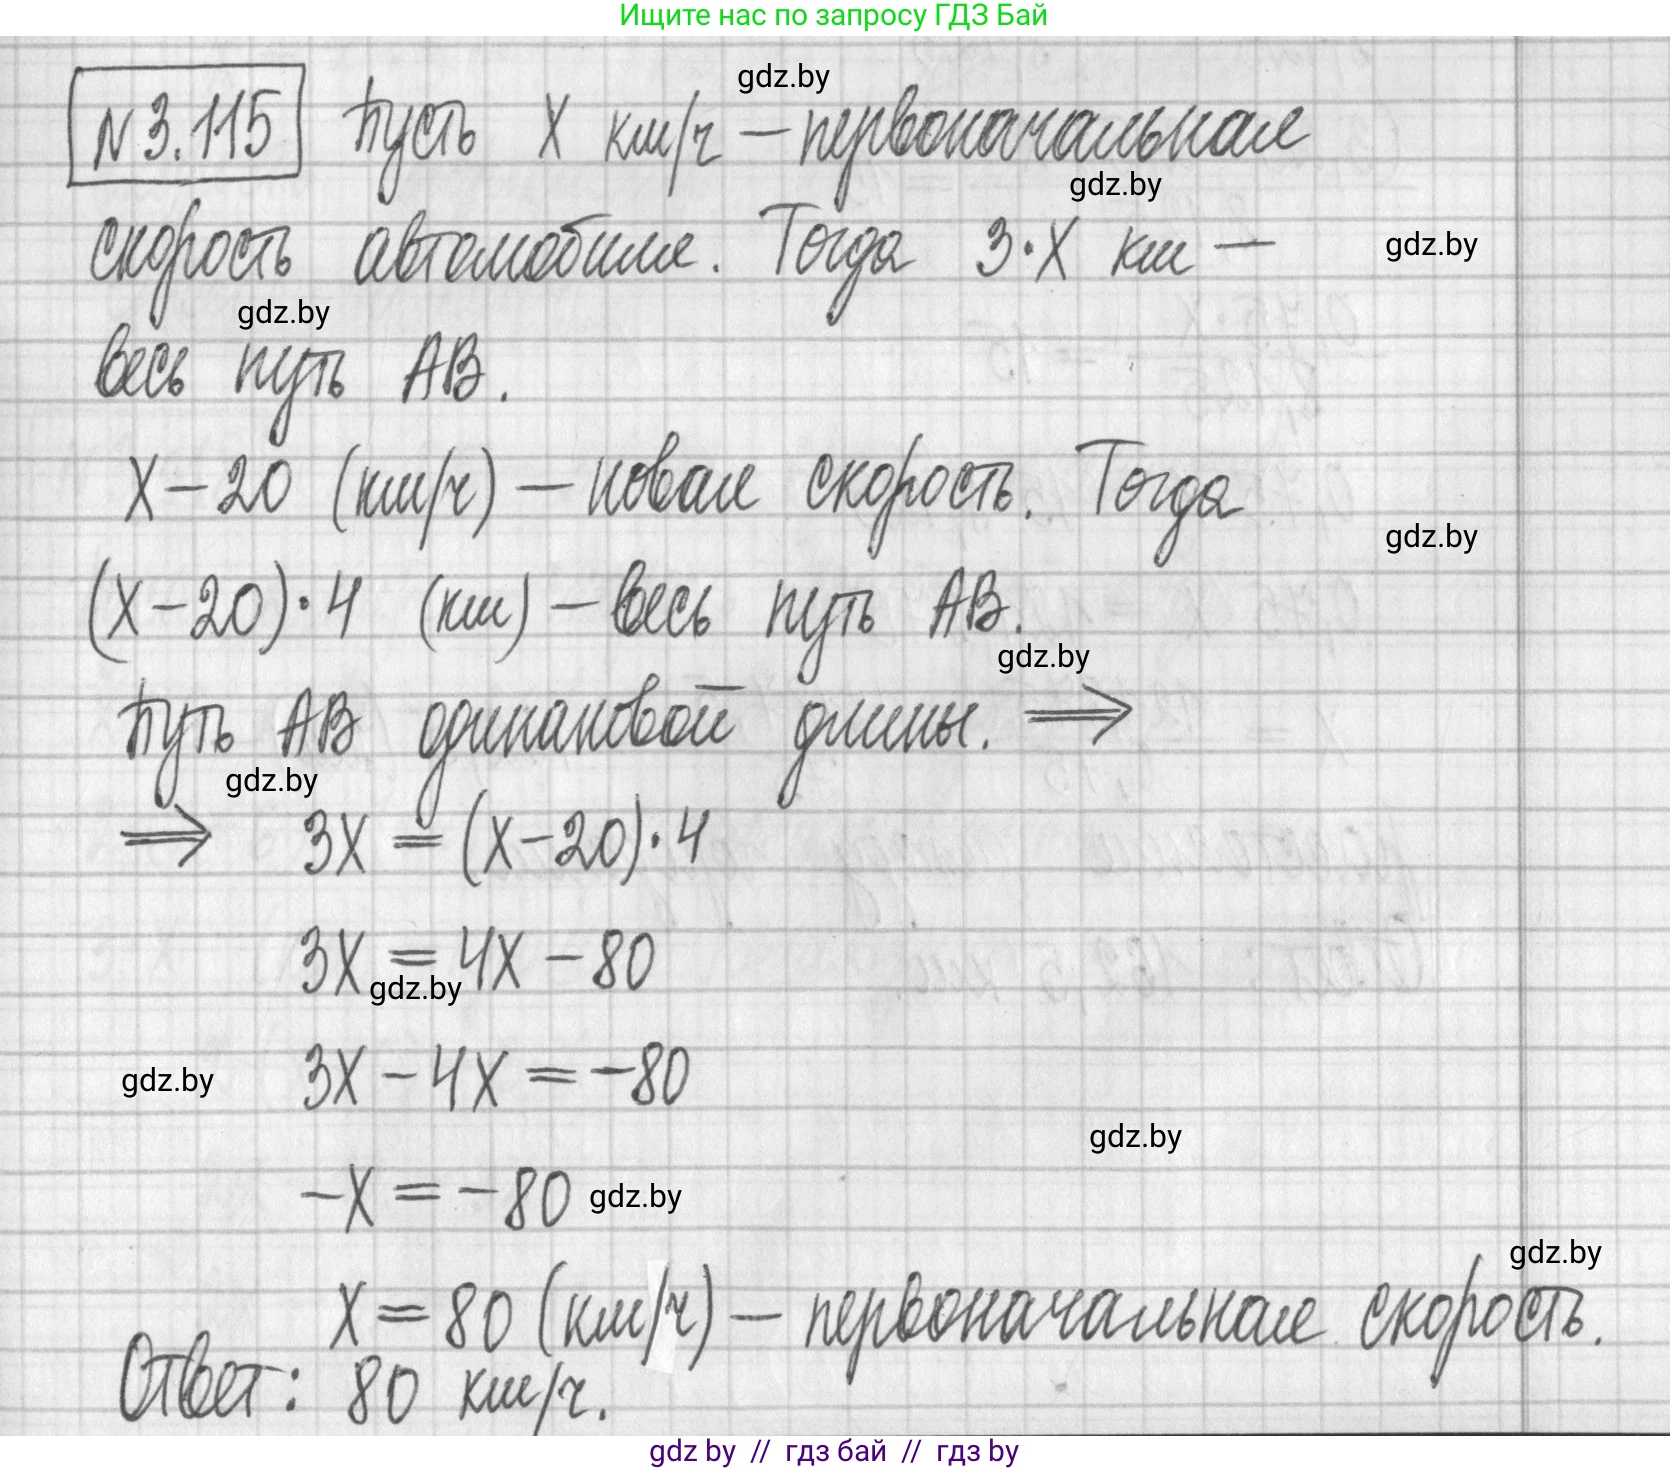 Ищите нас по запросу ГДЗ Бай
gdz.by
№3.115 Пусть X км/ч — первоначальная
gdz.by
скорость автомобиля. Тогда 3·X км — gdz.by
gdz.by
весь путь AB.
X — 20 (км/ч) — новая скорость. Тогда
gdz.by
(X — 20)·4 (км) — весь путь AB.
gdz.by
Путь AB одинаковой длины. ⟹
gdz.by
⟹ 3X = (X — 20)·4
3X = 4X — 80
gdz.by
3X — 4X = —80
gdz.by
gdz.by
—X = —80 gdz.by
gdz.by
X = 80 (км/ч) — первоначальная скорость.
Ответ: 80 км/ч.
gdz by // гдз бай // гдз by